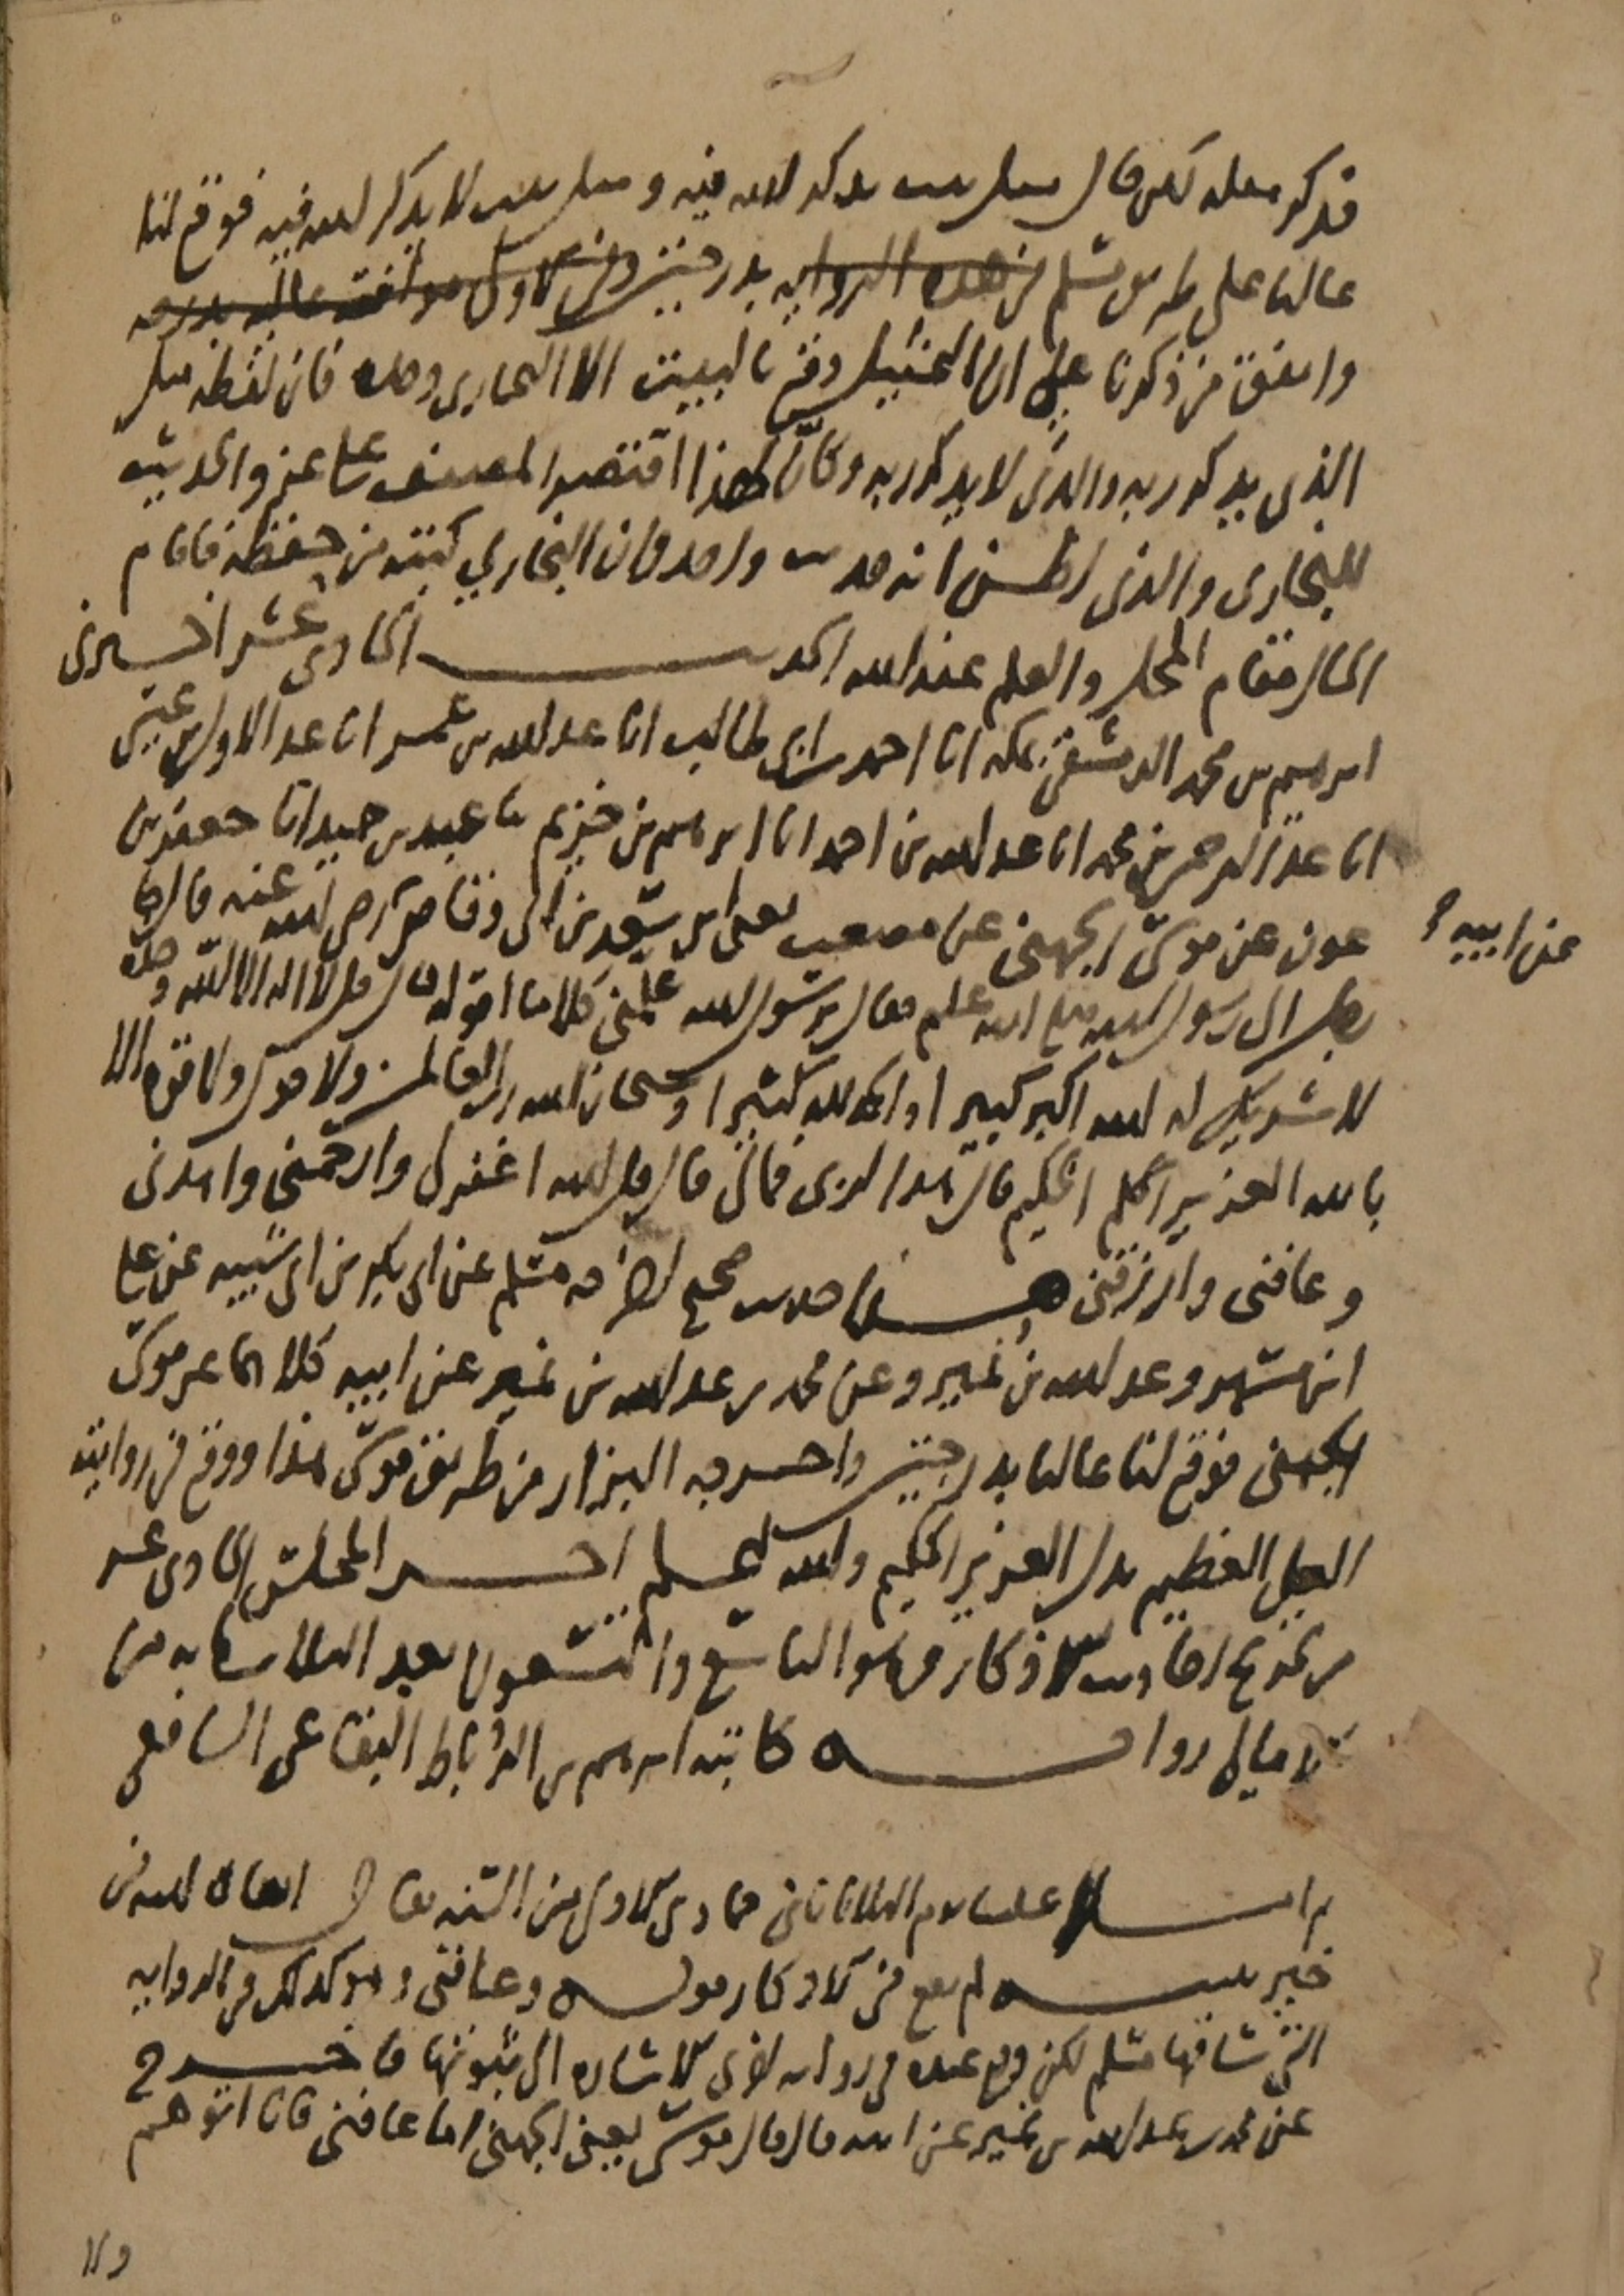 فذكر مثله لكن قال مثل بيت يذكر الله فيه ومثل بيت لا يذكر الله فيه فوقع لنا
عاليا على طريق مسلم من هذه الرواية بدرجتين وفي الأولى موافقة عالية بدرجة
واتفق من ذكرنا على ان التمثيل وقع بالبيت الا البخاري وحده فان لفظه مثل
الذي يذكر ربه والذي لا يذكر ربه وكأن لهذا اقتصر المصنف على عزو الحديث
للبخاري والذي اظن انه حديث واحد وان البخاري كتبه من حفظه فاقام
الحال مقام المحل والعلم عند الله الحديث الحادي عشر اخبرني
ابرهيم بن محمد الدمشقي بمكة انا احمد بن ابي طالب انا عبد الله بن عمر انا عبد الاول بن عيسى
انا عبد الرحمن بن محمد انا عبد الله بن احمد انا ابرهيم بن خزيم ثنا عبد بن حميد انا جعفر بن
عون عن موسى الجهني عن مصعب يعني ابن سعد بن ابي وقاص رضي الله عنه قال جاء
عن ابيه
رجل الى رسول الله صلى الله عليه وسلم فقال يرسول الله علمني كلاما اقوله قال قل لا اله الا الله وحده
لا شريك له الله اكبر كبيرا والحمد لله كثيرا وسبحان الله رب العالمين ولا حول ولا قوة الا
بالله العزيز الحكيم قال هذا لربي فمالي قال قل اللهم اغفر لي وارحمني واهدني
وعافني وارزقني هذا حديث صحيح اخرجه مسلم عن ابي بكر بن ابي شيبه عن علي
ابن مسهر وعبد الله بن نمير وعن محمد بن عبد الله بن نمير عن ابيه كلاهما عن موسى
الجهني فوقع لنا عاليا بدرجتين واخرجه البزار من طريق موسى هذا ووقع في روايته
العلي العظيم بدل العزيز الحكيم والله اعلم اخر المجلس الحادي عشر
من تخريج احاديث الاذكار وهو التاسع والتسعون بعد الثلاثمايه من
الامالي رواية كاتبه ابرهيم بن الرباط البقاعي الشافعي
ثم املا علينا يوم الثلاثا ثاني جمادى الاولى من السنه فقال ابقاه الله في
خير تنبيه لم يقع في الاذكار قوله وعافني وهو كذلك في الروايه
التي ساقها مسلم لكن وقع عنده في رواية اخرى الاشاره الى ثبوتها فاخرج
عن محمد بن عبد الله بن نمير عن ابيه قال قال موسى يعني الجهني اما عافني فانا اتوهم
ولا